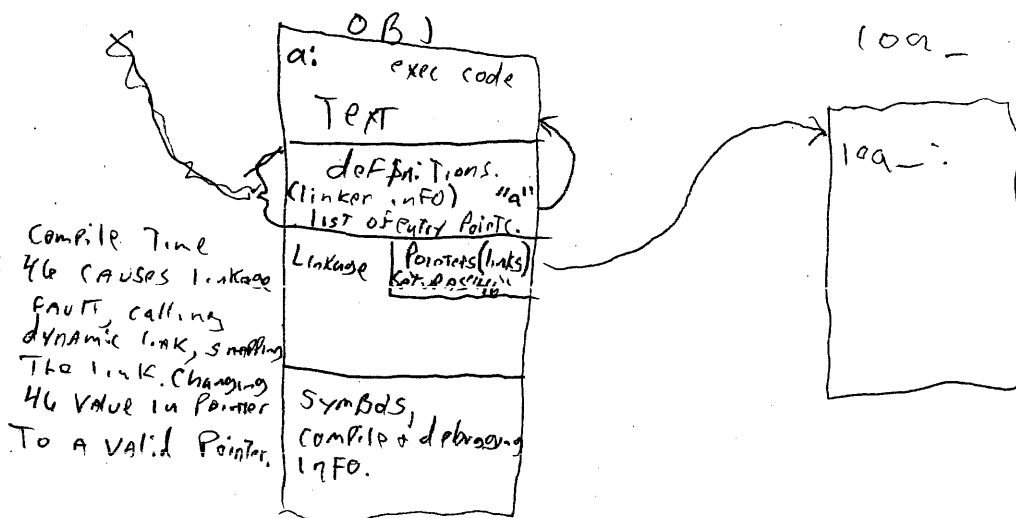 OBJ
a: exec code
Text
definitions.
(linker info) "a"
list of entry points.
Linkage
Pointers (links)
set up as "46"
Symbols,
compile & debugging
info.
Compile Time
46 causes linkage
fault, calling
dynamic link, snapping
The link. Changing
46 value in Pointer
To a valid Pointer.
ioa_
ioa_: